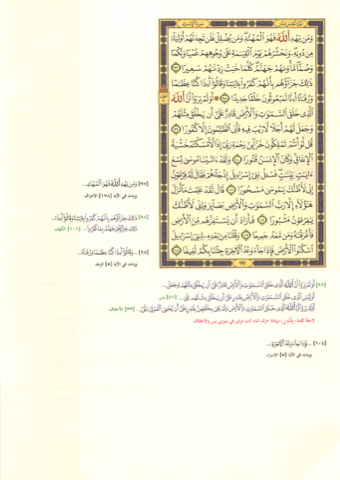 وَمَن يَهْدِ ٱللَّهُ فَهُوَ ٱلْمُهْتَدِ وَمَن يُضْلِلْ فَلَن تَجِدَ لَهُمْ أَوْلِيَآءَ
مِن دُونِهِۦ وَنَحْشُرُهُمْ يَوْمَ ٱلْقِيَٰمَةِ عَلَىٰ وُجُوهِهِمْ عُمْيًا وَبُكْمًا
وَصُمًّا مَّأْوَىٰهُمْ جَهَنَّمُ كُلَّمَا خَبَتْ زِدْنَٰهُمْ سَعِيرًا ٩٧
ذَٰلِكَ جَزَآؤُهُم بِأَنَّهُمْ كَفَرُوا۟ بِـَٔايَٰتِنَا وَقَالُوٓا۟ أَءِذَا كُنَّا عِظَٰمًا
وَرُفَٰتًا أَءِنَّا لَمَبْعُوثُونَ خَلْقًا جَدِيدًا ٩٨ أَوَلَمْ يَرَوْا۟ أَنَّ ٱللَّهَ
ٱلَّذِى خَلَقَ ٱلسَّمَٰوَٰتِ وَٱلْأَرْضَ قَادِرٌ عَلَىٰٓ أَن يَخْلُقَ مِثْلَهُمْ
وَجَعَلَ لَهُمْ أَجَلًا لَّا رَيْبَ فِيهِ فَأَبَى ٱلظَّٰلِمُونَ إِلَّا كُفُورًا ٩٩
قُل لَّوْ أَنتُمْ تَمْلِكُونَ خَزَآئِنَ رَحْمَةِ رَبِّىٓ إِذًا لَّأَمْسَكْتُمْ خَشْيَةَ
ٱلْإِنفَاقِ وَكَانَ ٱلْإِنسَٰنُ قَتُورًا ١٠٠ وَلَقَدْ ءَاتَيْنَا مُوسَىٰ تِسْعَ
ءَايَٰتٍۭ بَيِّنَٰتٍ فَسْـَٔلْ بَنِىٓ إِسْرَٰٓءِيلَ إِذْ جَآءَهُمْ فَقَالَ لَهُۥ فِرْعَوْنُ
إِنِّى لَأَظُنُّكَ يَٰمُوسَىٰ مَسْحُورًا ١٠١ قَالَ لَقَدْ عَلِمْتَ مَآ أَنزَلَ
هَٰٓؤُلَآءِ إِلَّا رَبُّ ٱلسَّمَٰوَٰتِ وَٱلْأَرْضِ بَصَآئِرَ وَإِنِّى لَأَظُنُّكَ
يَٰفِرْعَوْنُ مَثْبُورًا ١٠٢ فَأَرَادَ أَن يَسْتَفِزَّهُم مِّنَ ٱلْأَرْضِ
فَأَغْرَقْنَٰهُ وَمَن مَّعَهُۥ جَمِيعًا ١٠٣ وَقُلْنَا مِنۢ بَعْدِهِۦ لِبَنِىٓ إِسْرَٰٓءِيلَ
ٱسْكُنُوا۟ ٱلْأَرْضَ فَإِذَا جَآءَ وَعْدُ ٱلْـَٔاخِرَةِ جِئْنَا بِكُمْ لَفِيفًا ١٠٤
[٩٧] وَمَن يَهْدِ ٱللَّهُ فَهُوَ ٱلْمُهْتَدِ...
وردت في الآية [١٧٨] الأعراف
[٩٨] ذَٰلِكَ جَزَآؤُهُم بِأَنَّهُمْ كَفَرُوا۟ بِـَٔايَٰتِنَا وَقَالُوٓا۟ أَءِذَا...
ذَٰلِكَ جَزَآؤُهُمْ جَهَنَّمُ بِمَا كَفَرُوا۟... [١٠٦] الكهف
[٩٨] ...وَقَالُوٓا۟ أَءِذَا كُنَّا عِظَٰمًا وَرُفَٰتًا...
وردت في الآية [٥] الرعد
[٩٩] أَوَلَمْ يَرَوْا۟ أَنَّ ٱللَّهَ ٱلَّذِى خَلَقَ ٱلسَّمَٰوَٰتِ وَٱلْأَرْضَ قَادِرٌ عَلَىٰٓ أَن يَخْلُقَ مِثْلَهُمْ وَجَعَلَ...
أَوَلَيْسَ ٱلَّذِى خَلَقَ ٱلسَّمَٰوَٰتِ وَٱلْأَرْضَ بِقَٰدِرٍ عَلَىٰٓ أَن يَخْلُقَ مِثْلَهُم بَلَىٰ... [٨١] يس
أَوَلَمْ يَرَوْا۟ أَنَّ ٱللَّهَ ٱلَّذِى خَلَقَ ٱلسَّمَٰوَٰتِ وَٱلْأَرْضَ وَلَمْ يَعْىَ بِخَلْقِهِنَّ بِقَٰدِرٍ عَلَىٰٓ أَن يُحْۦِىَ ٱلْمَوْتَىٰ بَلَىٰٓ... [٣٣] الأحقاف
[١٠٤] ...فَإِذَا جَآءَ وَعْدُ ٱلْـَٔاخِرَةِ...
وردت في الآية [٧] الإسراء